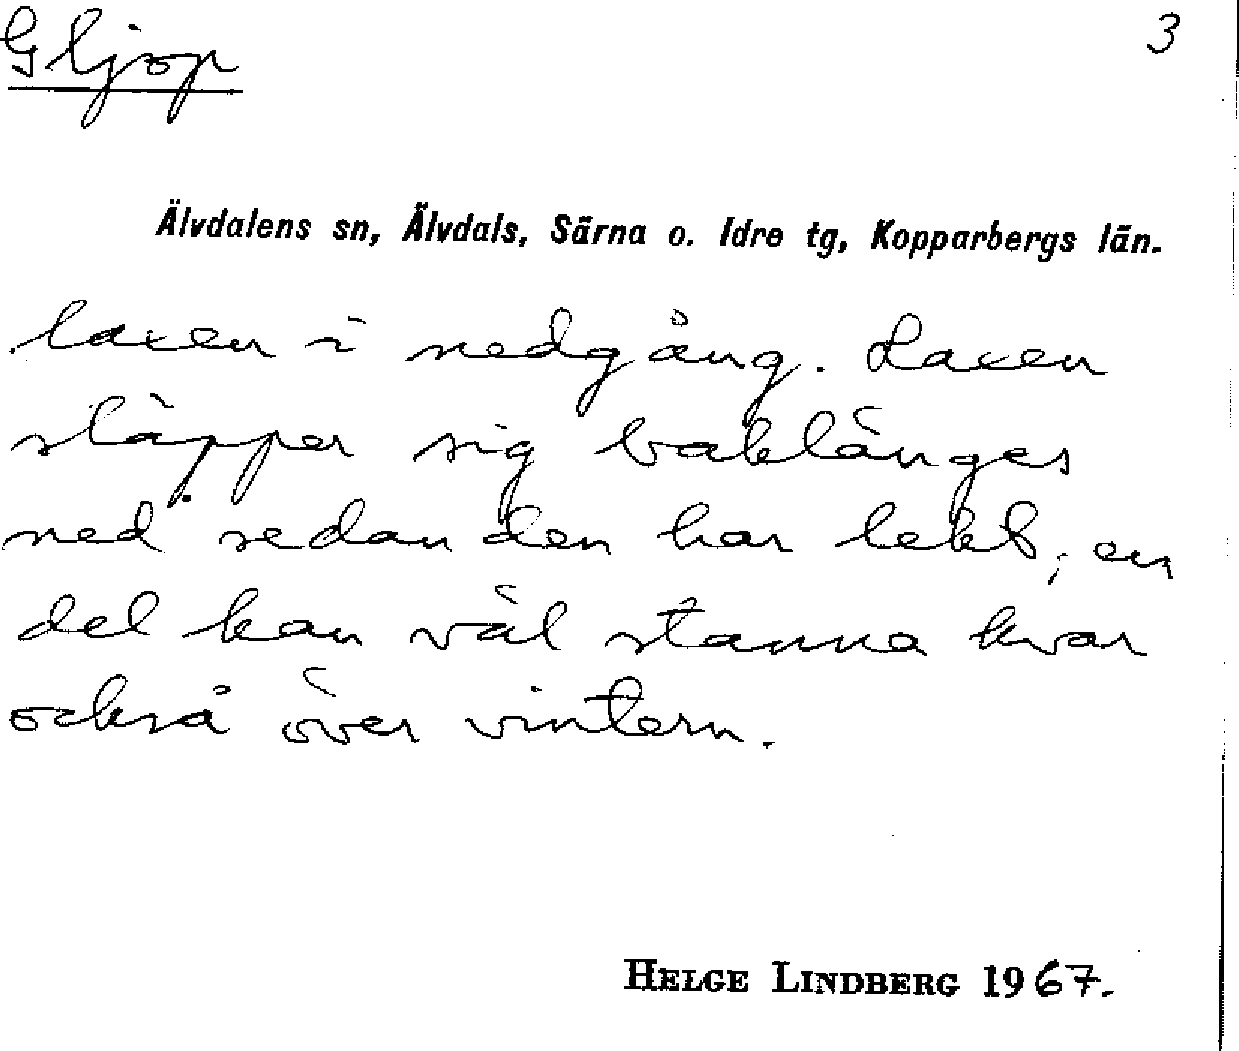 Gljop
3
Älvdalens sn, Älvdals, Särna o. Idre tg, Kopparbergs län.
laxen i nedgång. Laxen
släpper sig baklänges
ned sedan den har lekt, en
del kan väl stanna kvar
också över vintern.
HELGE LINDBERG 1967.